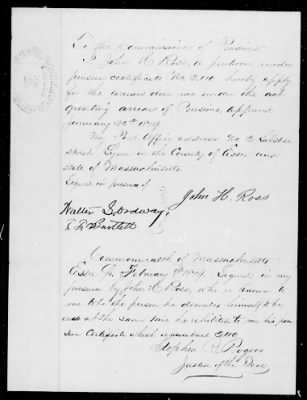 To the Commissioner of Pensions
I John H. Ross, a pensioner under
pension certificate No 2,110 hereby apply
for the arrears due me under the act
granting arrears of Pensions, approved
January 25th 1879.
My Post Office address No 2
street, Lynn in the County of Essex and
state of Massachusetts.
Signed in presence of
John H. Ross
Walter S. Ordway;
Bartlett
Commonwealth of Massachusetts
Essex Ss. February 1879. Signed in my
presence by John H. Ross, who is known to
me to be the person he describes himself to be
and at the same time he exhibited to me his pen-
sion Certificate which is numbered 2,110
Stephen
Justice of the Peace